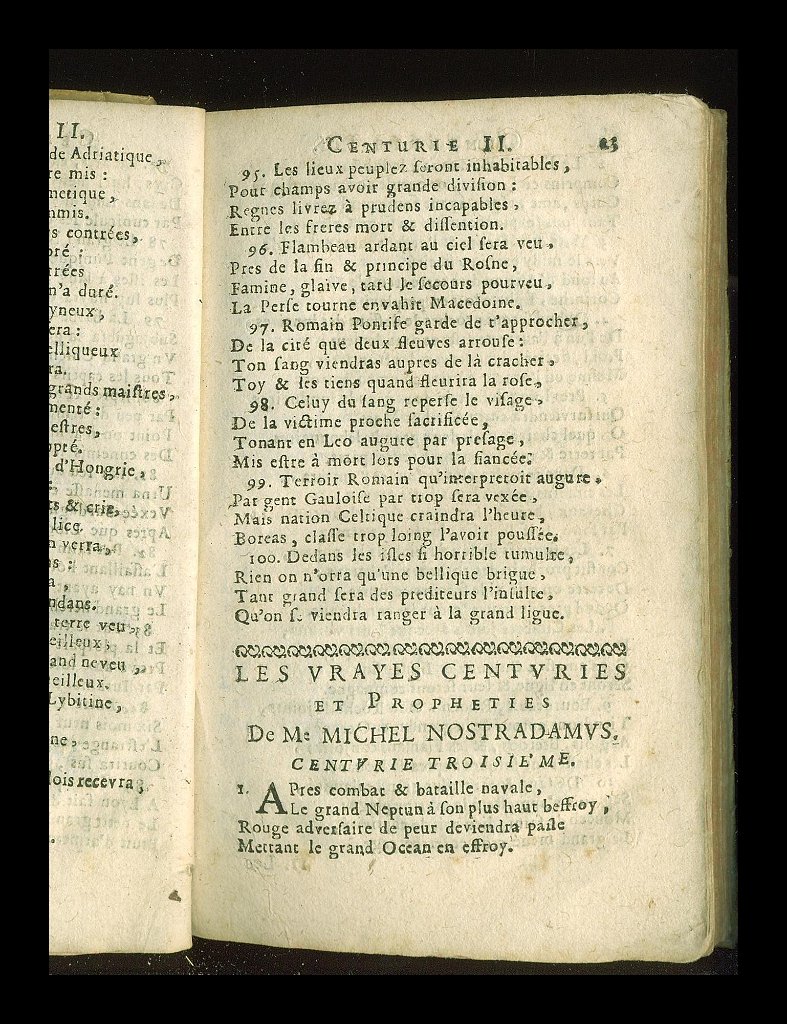 II.
de Adriatique,
re mis :
metique,
mmis.
s contrées,
oré :
rrées
n'a duré.
yneux,
era :
elliqueux
ra.
grands maiſtres,
menté :
eſtres,
opté.
d'Hongrie,
s & crie,
lice.
n verra,
ns :
a,
ndans.
terre veu,
eilleux,
and neveu,
eilleux.
Lybitine,
ne,
lois recevra;
CENTURIE II. 23
95. Les lieux peuplez ſeront inhabitables,
Pour champs avoir grande diviſion :
Regnes livrez à prudens incapables,
Entre les freres mort & diſſention.
96. Flambeau ardant au ciel ſera veu,
Pres de la fin & principe du Roſne,
Famine, glaive, tard le ſecours pourveu,
La Perſe tourne envahir Macedoine.
97. Romain Pontife garde de t'approcher,
De la cité que deux fleuves arrouſe :
Ton ſang viendras aupres de là cracher,
Toy & les tiens quand fleurira la roſe.
98. Celuy du ſang reperſe le viſage,
De la victime proche ſacrificée,
Tonant en Leo augure par preſage,
Mis eſtre à mort lors pour la fiancée.
99. Terroir Romain qu'interpretoit augure,
Par gent Gauloiſe par trop ſera vexée,
Mais nation Celtique craindra l'heure,
Boreas, claſſe trop loing l'avoir pouſſée.
100. Dedans les iſles ſi horrible tumulte,
Rien on n'orra qu'une bellique brigue,
Tant grand ſera des prediteurs l'inſulte,
Qu'on ſe viendra ranger à la grand ligue.
LES VRAYES CENTVRIES
ET PROPHETIES
De Me MICHEL NOSTRADAMVS.
CENTVRIE TROISIE'ME.
1. APres combat & bataille navale,
Le grand Neptun à ſon plus haut beffroy,
Rouge adverſaire de peur deviendra paſle
Mettant le grand Ocean en effroy.